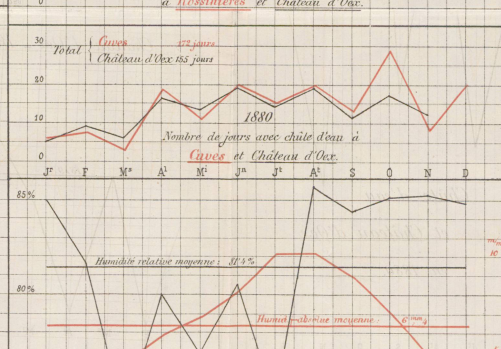 0 à Rossinières et Château d'Oex.
30
Total { Caves 172 jours
Château d'Oex 155 jours
20
10
1880
Nombre de jours avec chûte d'eau à
0 Caves et Château d'Oex.
Jr F Ms Al Mi Jn Jt At S O N D
85%
m/m
Humidité relative moyenne: 81'4% 10
80%
Humid absolue moyenne: